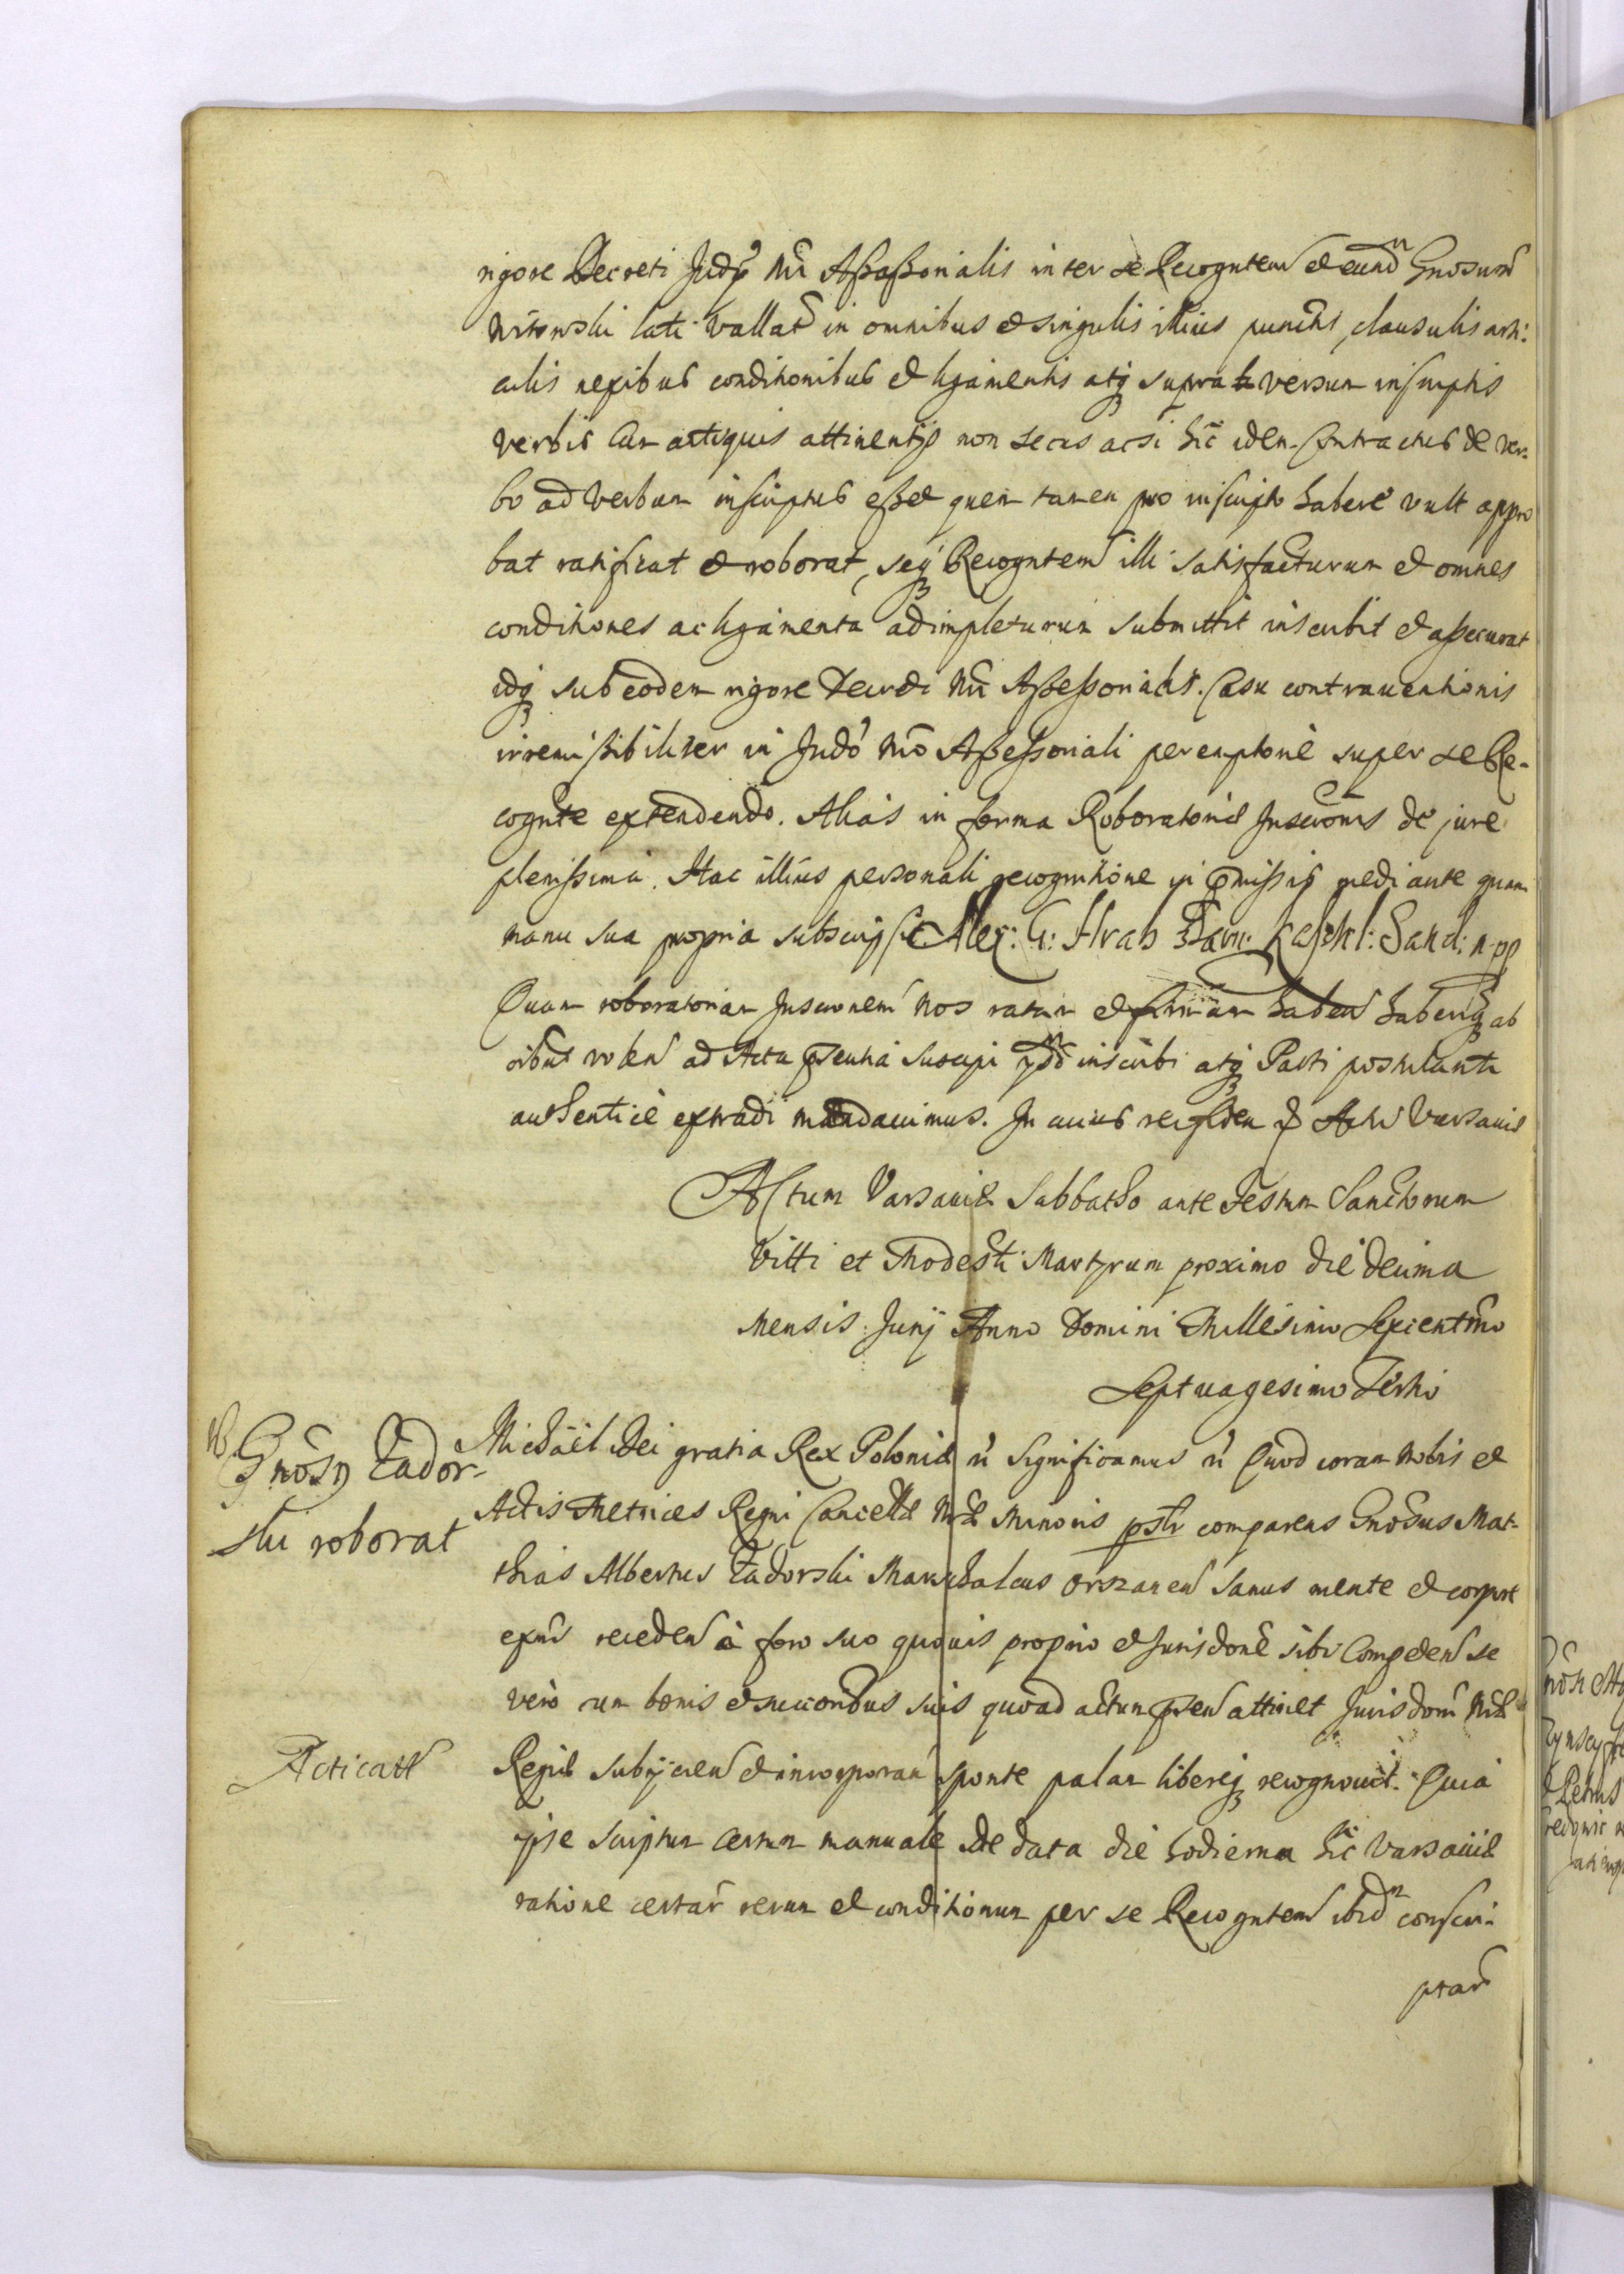 rigore Decreti Judÿ Nrĩ Aßaßorialis inter se Recogntem̃ et eund̃m Gnosum̃
Witowski lati vallat̃ in omnibus et singulis illius punctis, clausulis arti:
culis nexibus conditionibus et ligamentis atq̃ supra versum inscriptis
verbis Cum attiquis attinentijs non secus acsi hic idem Contractus de ver:
bo ad verbum inscriptus eßet quem tamen pro inscripto habere vult appro
bat ratificat et roborat, seq̃ Recogntem̃ illi satisfacturum et omnes
conditiones ac ligamenta adimpleturum submittit inscribit et aßecurat
idq̃ sub eodem rigore Decreti Nrĩ Aßeßorialis. Casu contrauentionis
irremißibiliter in Judõ Nrõ Aßeßoriali peremptoriè super se Re-
cognte extendendo. Alias in forma Roboratoriæ Inscrõnis de jure
plenißima. Hac illius personali recognitione in pmißis mediante quam
manu sua propria subscripsit Alex: Hrab Kaszthl: Sand: m. pp
Quam roboratoriam Inscronem̃ Nos ratam et firmam habeñ haberiq̃ ab
oibus voleñ ad Acta pñentia suscipi inscribi atq̃ Parti postulanti
authenticè extradi mandauimus. In cuius rei fidem Act̃ Varsauiæ
Actum Varsauiæ Sabbatho ante Festum Sanctorum
Vitti et Modesti Martyrum proximo die decima
Mensis Junÿ Anno Domini Millesimo Sexcentm̃o
Septuagesimo Tertio
Gnõsy Zador-
ski roborat
Michäel Dei gratia Rex Poloniæ ũ Significamus ũ Quod coram Nobis et
Actis Metrices Regni Cancellæ Nræ Minoris pslr comparens Gnõsus Mat-
thias Albertus Zadorski Marschalcus Orszaneñ sanus mente et corpore
exñs recedeñ à foro suo quouis proprio et Jurisdonẽ sibi Competeñ se
verò cum bonis et successoribus suis quoad actum pseñ attinet Jurisdoni Nræ
Acticatt
Regiæ subijcieñ et incorporañ sponte palam libereq̃ recognouit. Quia
ipse scriptum certum manuale de data die hodierna hic Varsauiæ
ratione certar̃ rerum et conditionum per se Recogntem̃ ibid̃m conscri-
ptar̃